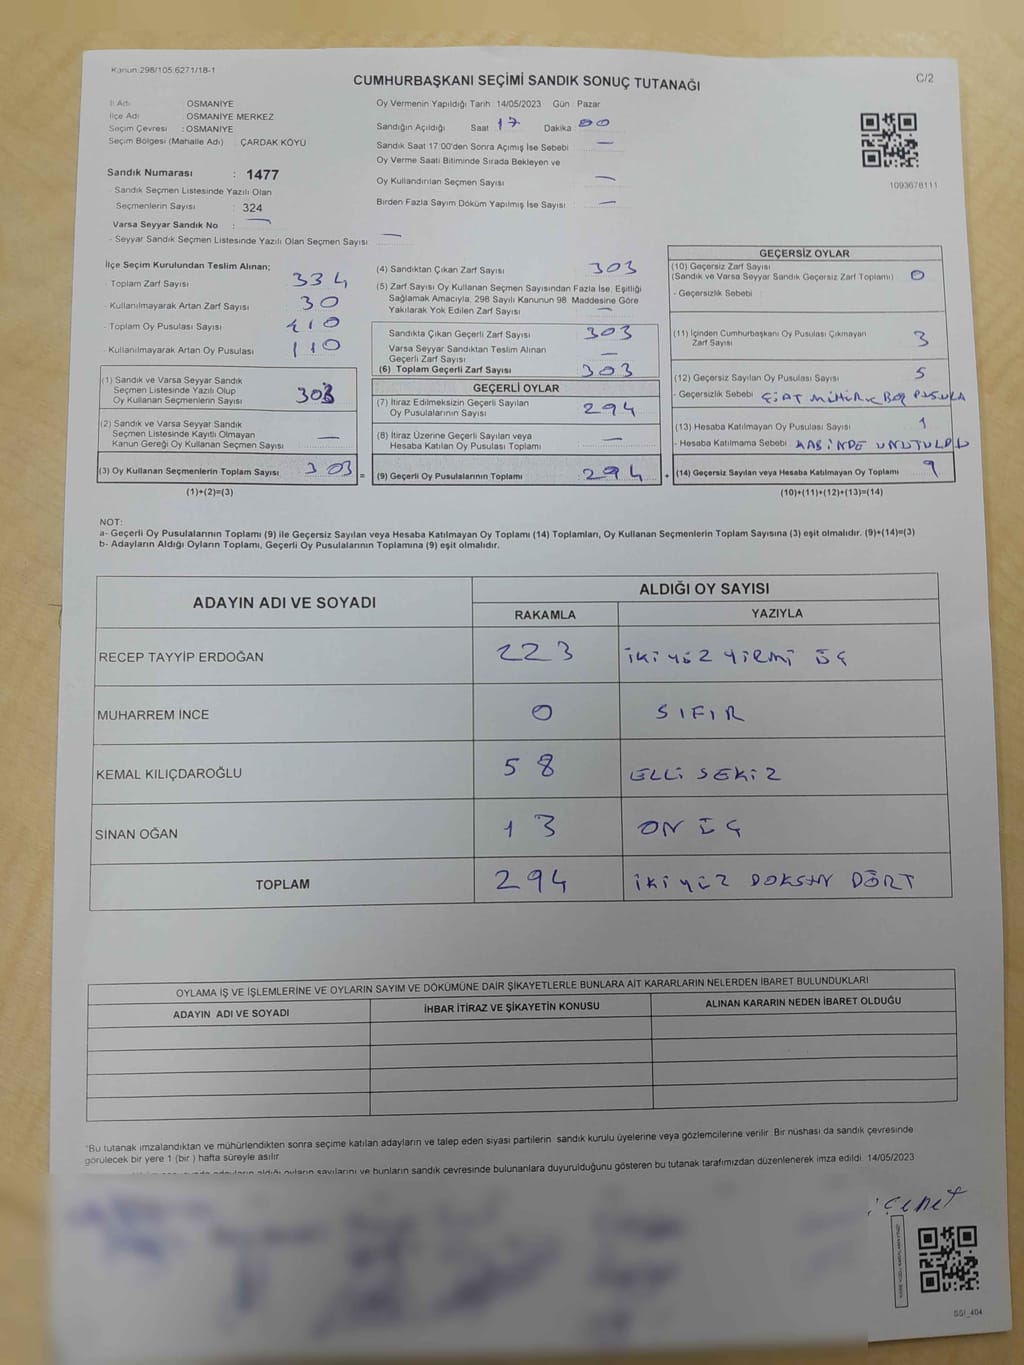 Kanun:298/105:6271/18-1
C/2
CUMHURBAŞKANI SEÇİMİ SANDIK SONUÇ TUTANAĞI
İl Adı : OSMANİYE
İlçe Adı : OSMANİYE MERKEZ
Seçim Çevresi : OSMANİYE
Seçim Bölgesi (Mahalle Adı) : ÇARDAK KÖYÜ
Sandık Numarası : 1477
- Sandık Seçmen Listesinde Yazılı Olan
Seçmenlerin Sayısı : 324
Varsa Seyyar Sandık No : —
- Seyyar Sandık Seçmen Listesinde Yazılı Olan Seçmen Sayısı —
Oy Vermenin Yapıldığı Tarih : 14/05/2023 Gün : Pazar
Sandığın Açıldığı Saat 17 Dakika 00
Sandık Saat 17:00'den Sonra Açımış İse Sebebi —
Oy Verme Saati Bitiminde Sırada Bekleyen ve
Oy Kullandırılan Seçmen Sayısı —
Birden Fazla Sayım Döküm Yapılmış İse Sayısı —
1093678111
İlçe Seçim Kurulundan Teslim Alınan;
- Toplam Zarf Sayısı 334
- Kullanılmayarak Artan Zarf Sayısı 30
- Toplam Oy Pusulası Sayısı 410
- Kullanılmayarak Artan Oy Pusulası 110
(1) Sandık ve Varsa Seyyar Sandık
Seçmen Listesinde Yazılı Olup
Oy Kullanan Seçmenlerin Sayısı 303
(2) Sandık ve Varsa Seyyar Sandık
Seçmen Listesinde Kayıtlı Olmayan
Kanun Gereği Oy Kullanan Seçmen Sayısı —
(3) Oy Kullanan Seçmenlerin Toplam Sayısı 303 =
(1)+(2)=(3)
(4) Sandıktan Çıkan Zarf Sayısı 303
(5) Zarf Sayısı Oy Kullanan Seçmen Sayısından Fazla İse, Eşitliği
Sağlamak Amacıyla, 298 Sayılı Kanunun 98. Maddesine Göre
Yakılarak Yok Edilen Zarf Sayısı —
Sandıkta Çıkan Geçerli Zarf Sayısı 303
Varsa Seyyar Sandıktan Teslim Alınan
Geçerli Zarf Sayısı —
(6) Toplam Geçerli Zarf Sayısı 303
GEÇERLİ OYLAR
(7) İtiraz Edilmeksizin Geçerli Sayılan
Oy Pusulalarının Sayısı 294
(8) İtiraz Üzerine Geçerli Sayılan veya
Hesaba Katılan Oy Pusulası Toplamı —
(9) Geçerli Oy Pusulalarının Toplamı 294 +
GEÇERSİZ OYLAR
(10) Geçersiz Zarf Sayısı
(Sandık ve Varsa Seyyar Sandık Geçersiz Zarf Toplamı) 0
- Geçersizlik Sebebi
(11) İçinden Cumhurbaşkanı Oy Pusulası Çıkmayan
Zarf Sayısı 3
(12) Geçersiz Sayılan Oy Pusulası Sayısı 5
- Geçersizlik Sebebi ÇİFT MÜHÜR, BOŞ PUSULA
(13) Hesaba Katılmayan Oy Pusulası Sayısı 1
- Hesaba Katılmama Sebebi KABİNDE UNUTULDU
(14) Geçersiz Sayılan veya Hesaba Katılmayan Oy Toplamı 9
(10)+(11)+(12)+(13)=(14)
NOT:
a- Geçerli Oy Pusulalarının Toplamı (9) ile Geçersiz Sayılan veya Hesaba Katılmayan Oy Toplamı (14) Toplamları, Oy Kullanan Seçmenlerin Toplam Sayısına (3) eşit olmalıdır. (9)+(14)=(3)
b- Adayların Aldığı Oyların Toplamı, Geçerli Oy Pusulalarının Toplamına (9) eşit olmalıdır.
ADAYIN ADI VE SOYADI
ALDIĞI OY SAYISI
RAKAMLA YAZIYLA
RECEP TAYYİP ERDOĞAN 223 İKİ YÜZ YİRMİ ÜÇ
MUHARREM İNCE 0 SIFIR
KEMAL KILIÇDAROĞLU 58 ELLİ SEKİZ
SİNAN OĞAN 13 ON ÜÇ
TOPLAM 294 İKİ YÜZ DOKSAN DÖRT
OYLAMA İŞ VE İŞLEMLERİNE VE OYLARIN SAYIM VE DÖKÜMÜNE DAİR ŞİKAYETLERLE BUNLARA AİT KARARLARIN NELERDEN İBARET BULUNDUKLARI
ADAYIN ADI VE SOYADI İHBAR İTİRAZ VE ŞİKAYETİN KONUSU ALINAN KARARIN NEDEN İBARET OLDUĞU
*Bu tutanak imzalandıktan ve mühürlendikten sonra seçime katılan adayların ve talep eden siyasi partilerin sandık kurulu üyelerine veya gözlemcilerine verilir. Bir nüshası da sandık çevresinde
görülecek bir yere 1 (bir) hafta süreyle asılır.
adayların aldığı oyların sayılarını ve bunların sandık çevresinde bulunanlara duyurulduğunu gösteren bu tutanak tarafımızdan düzenlenerek imza edildi. 14/05/2023